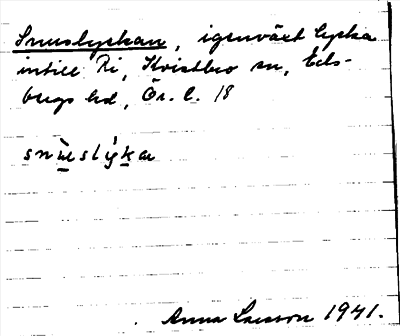 Snuslyckan, igenväxt lycka
intill Ri, Kvistbro sn, Eds-
bergs hd, Ör. l. 18
snùslýkan
Anna Larsson 1941.